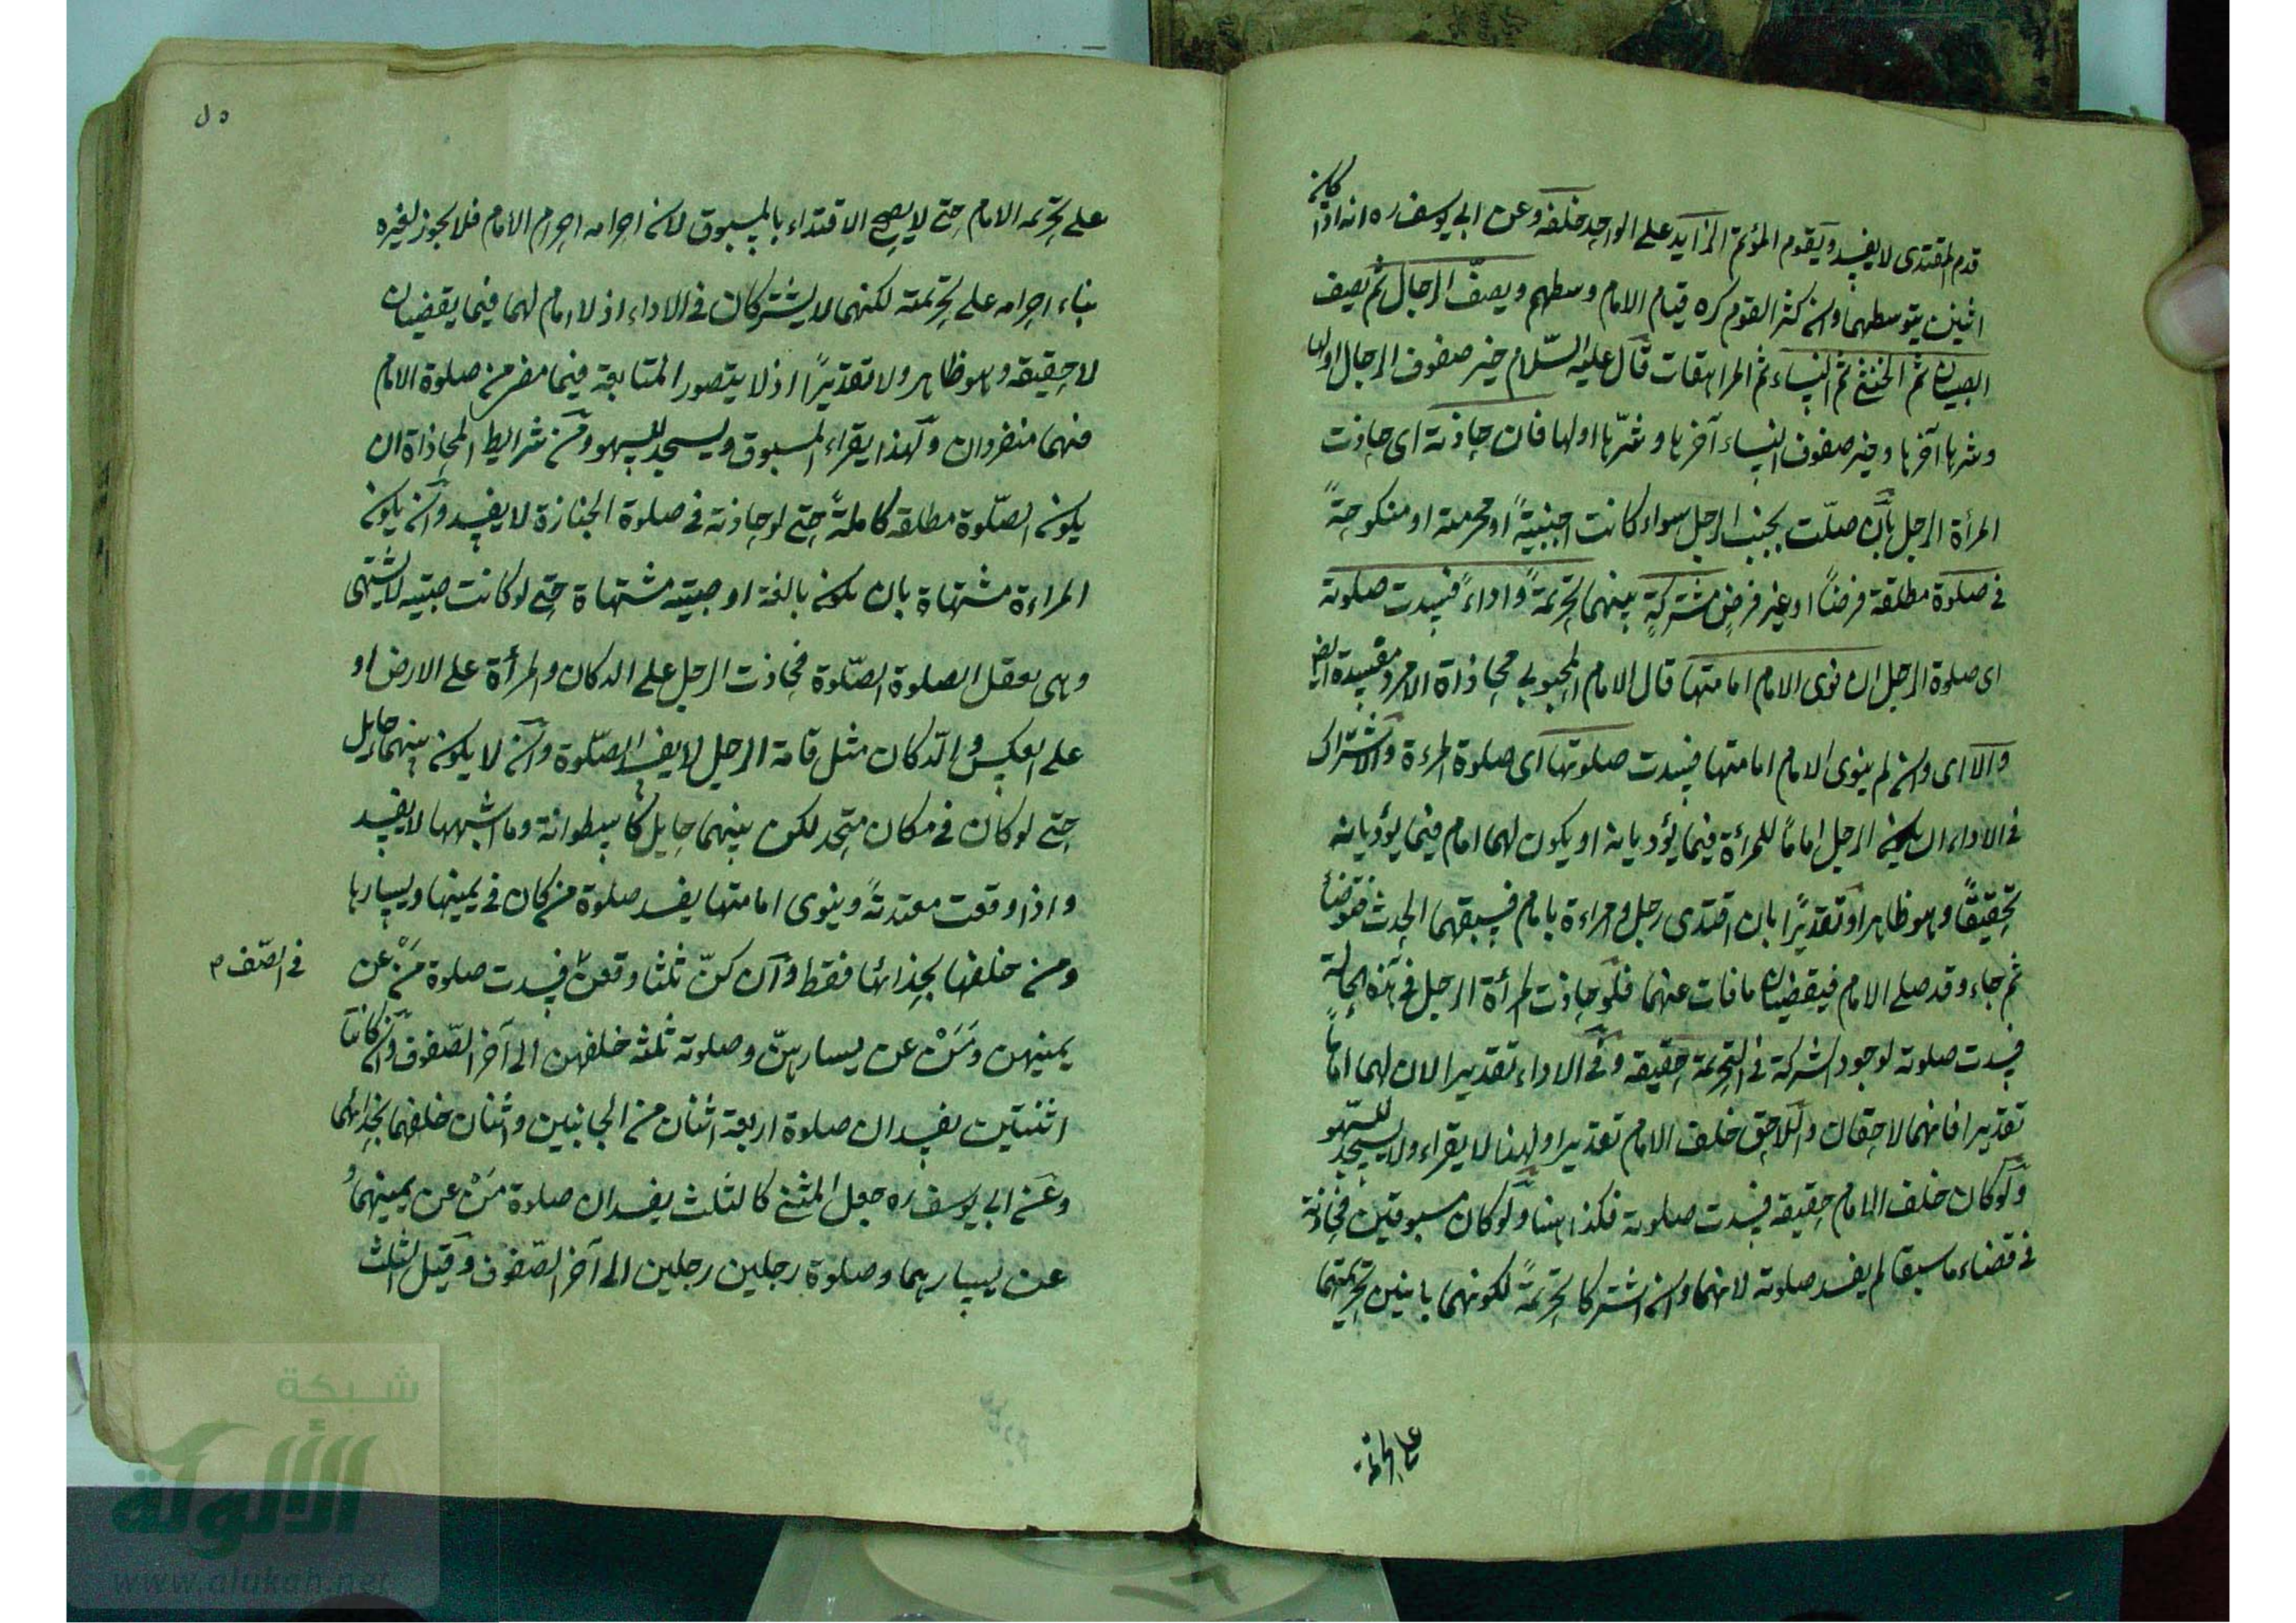 كان
قدم المقتدى لا يفسد ويقوم المؤتم الزايد على الواحد خلفه وعن ابى يوسف ره انه اذا
اثنين يتوسطهما وان كثر القوم كره قيام الامام وسطهم ويصف الرجال ثم يصف
الصبيان ثم الخنثى ثم النساء ثم المراهقات قال عليه السلام خير صفوف الرجال اولها
وشرها آخرها وخير صفوف النساء آخرها وشرّها اولها فان حاذته اى حاذت
المرأة الرجل بأن صلّت بجنب الرجل سواء كانت اجنبيةً او محرمته او منكوحةً
فى صلوة مطلقة فرضاً او غير فرض مشتركةٍ بينهما تحريمةً واداءً فسدت صلوته
اى صلوة الرجل ان نوى الامام امامتها قال الامام المحبوبى محاذاة الامرد مفسدة ايضا
والا اى وان لم ينوى الامام امامتها فسدت صلوتها اى صلوة المرءة والاشتراك
فى الاداء ان يكون الرجل اماماً للمرأة فيما يؤديانه او يكون لهما امام فيما يؤديانه
تحقيقًا وهو ظاهر او تقديرًا بان اقتدى رجل وامراءة بامام فسبقهما الحدث فتوضأ
ثم جاء وقد صلى الامام فيقضيان ما فات عنهما فلو حاذت المرأة الرجل فى هذه الحالة
فسدت صلوته لوجود الشركة فى التحريمة حقيقة وفى الاداء تقديرا لان لهما اماماً
تقديرا فانهما لاحقان واللاحق خلف الامام تقديرا ولهذا لا يقراء ولا يسجد للسّهو
ولو كان خلف الامام حقيقة فسدت صلوته فكذا هنا ولو كان مسبوقين فحاذته
فى قضاء ما سبقا لم يفسد صلوته لانهما وان اشتركا تحريمةً لكونهما بانيين تحريمتهما
على تحريمة
على تحريمه الامام حتى لا يصح الاقتداء بالمسبوق لان احرامه احرام الامام فلا يجوز لغيره
بناء احرامه على تحريمته لكنهما لا يشتركان فى الاداء اذ لا امام لهما فيما يقضيان
لا حقيقه وهو ظاهر ولا تقديرًا اذ لا يتصور المتابعة فيما مضى من صلوة الامام
فهما منفردان ولهذا يقراء المسبوق ويسجد للسهو ومن شرايط المحاذاة ان
يكون الصّلوة مطلقه كاملةً حتى لو حاذته فى صلوة الجنازة لا يفسد وان يكون
المراءة مشتهاة بان يكون بالغة او صبيّه مشتهاة حتى لو كانت صبيّه لا يشتهى
وهى تعقل الصلوة الصّلوة فحاذت الرجل على الدكان والمرأة على الارض او
على العكس والدّكان مثل قامة الرجل لا يفسد الصّلوة وان لا يكون بينهما حايل
حتى لو كان فى مكان متحد لكن بينهما حايل كاسطوانة وما اشبهها لا يفسد
واذا وقعت مقتديةً وينوى امامتها يفسد صلوة من كان فى يمينها ويسارها
ومن خلفها بحذائها فقط وان كنّ ثلثا وقعن فسدت صلوة مَنْ عن
فى الصّف م
يمينهن ومَنْ عن يسارهنّ وصلوته ثلثه خلفهن الى آخر الصّفوف وان كانتا
اثنتين يفسدان صلوة اربعة اثنان من الجانبين واثنان خلفهما بحذائهما
وعن ابى يوسف ره جعل المثنى كالثلث يفسدان صلوة مَنْ عن يمينهما و
عن يسارهما وصلوة رجلين رجلين الى آخر الصّفوف وقيل الثلث
شبكة
الألوكة
www.alukah.net